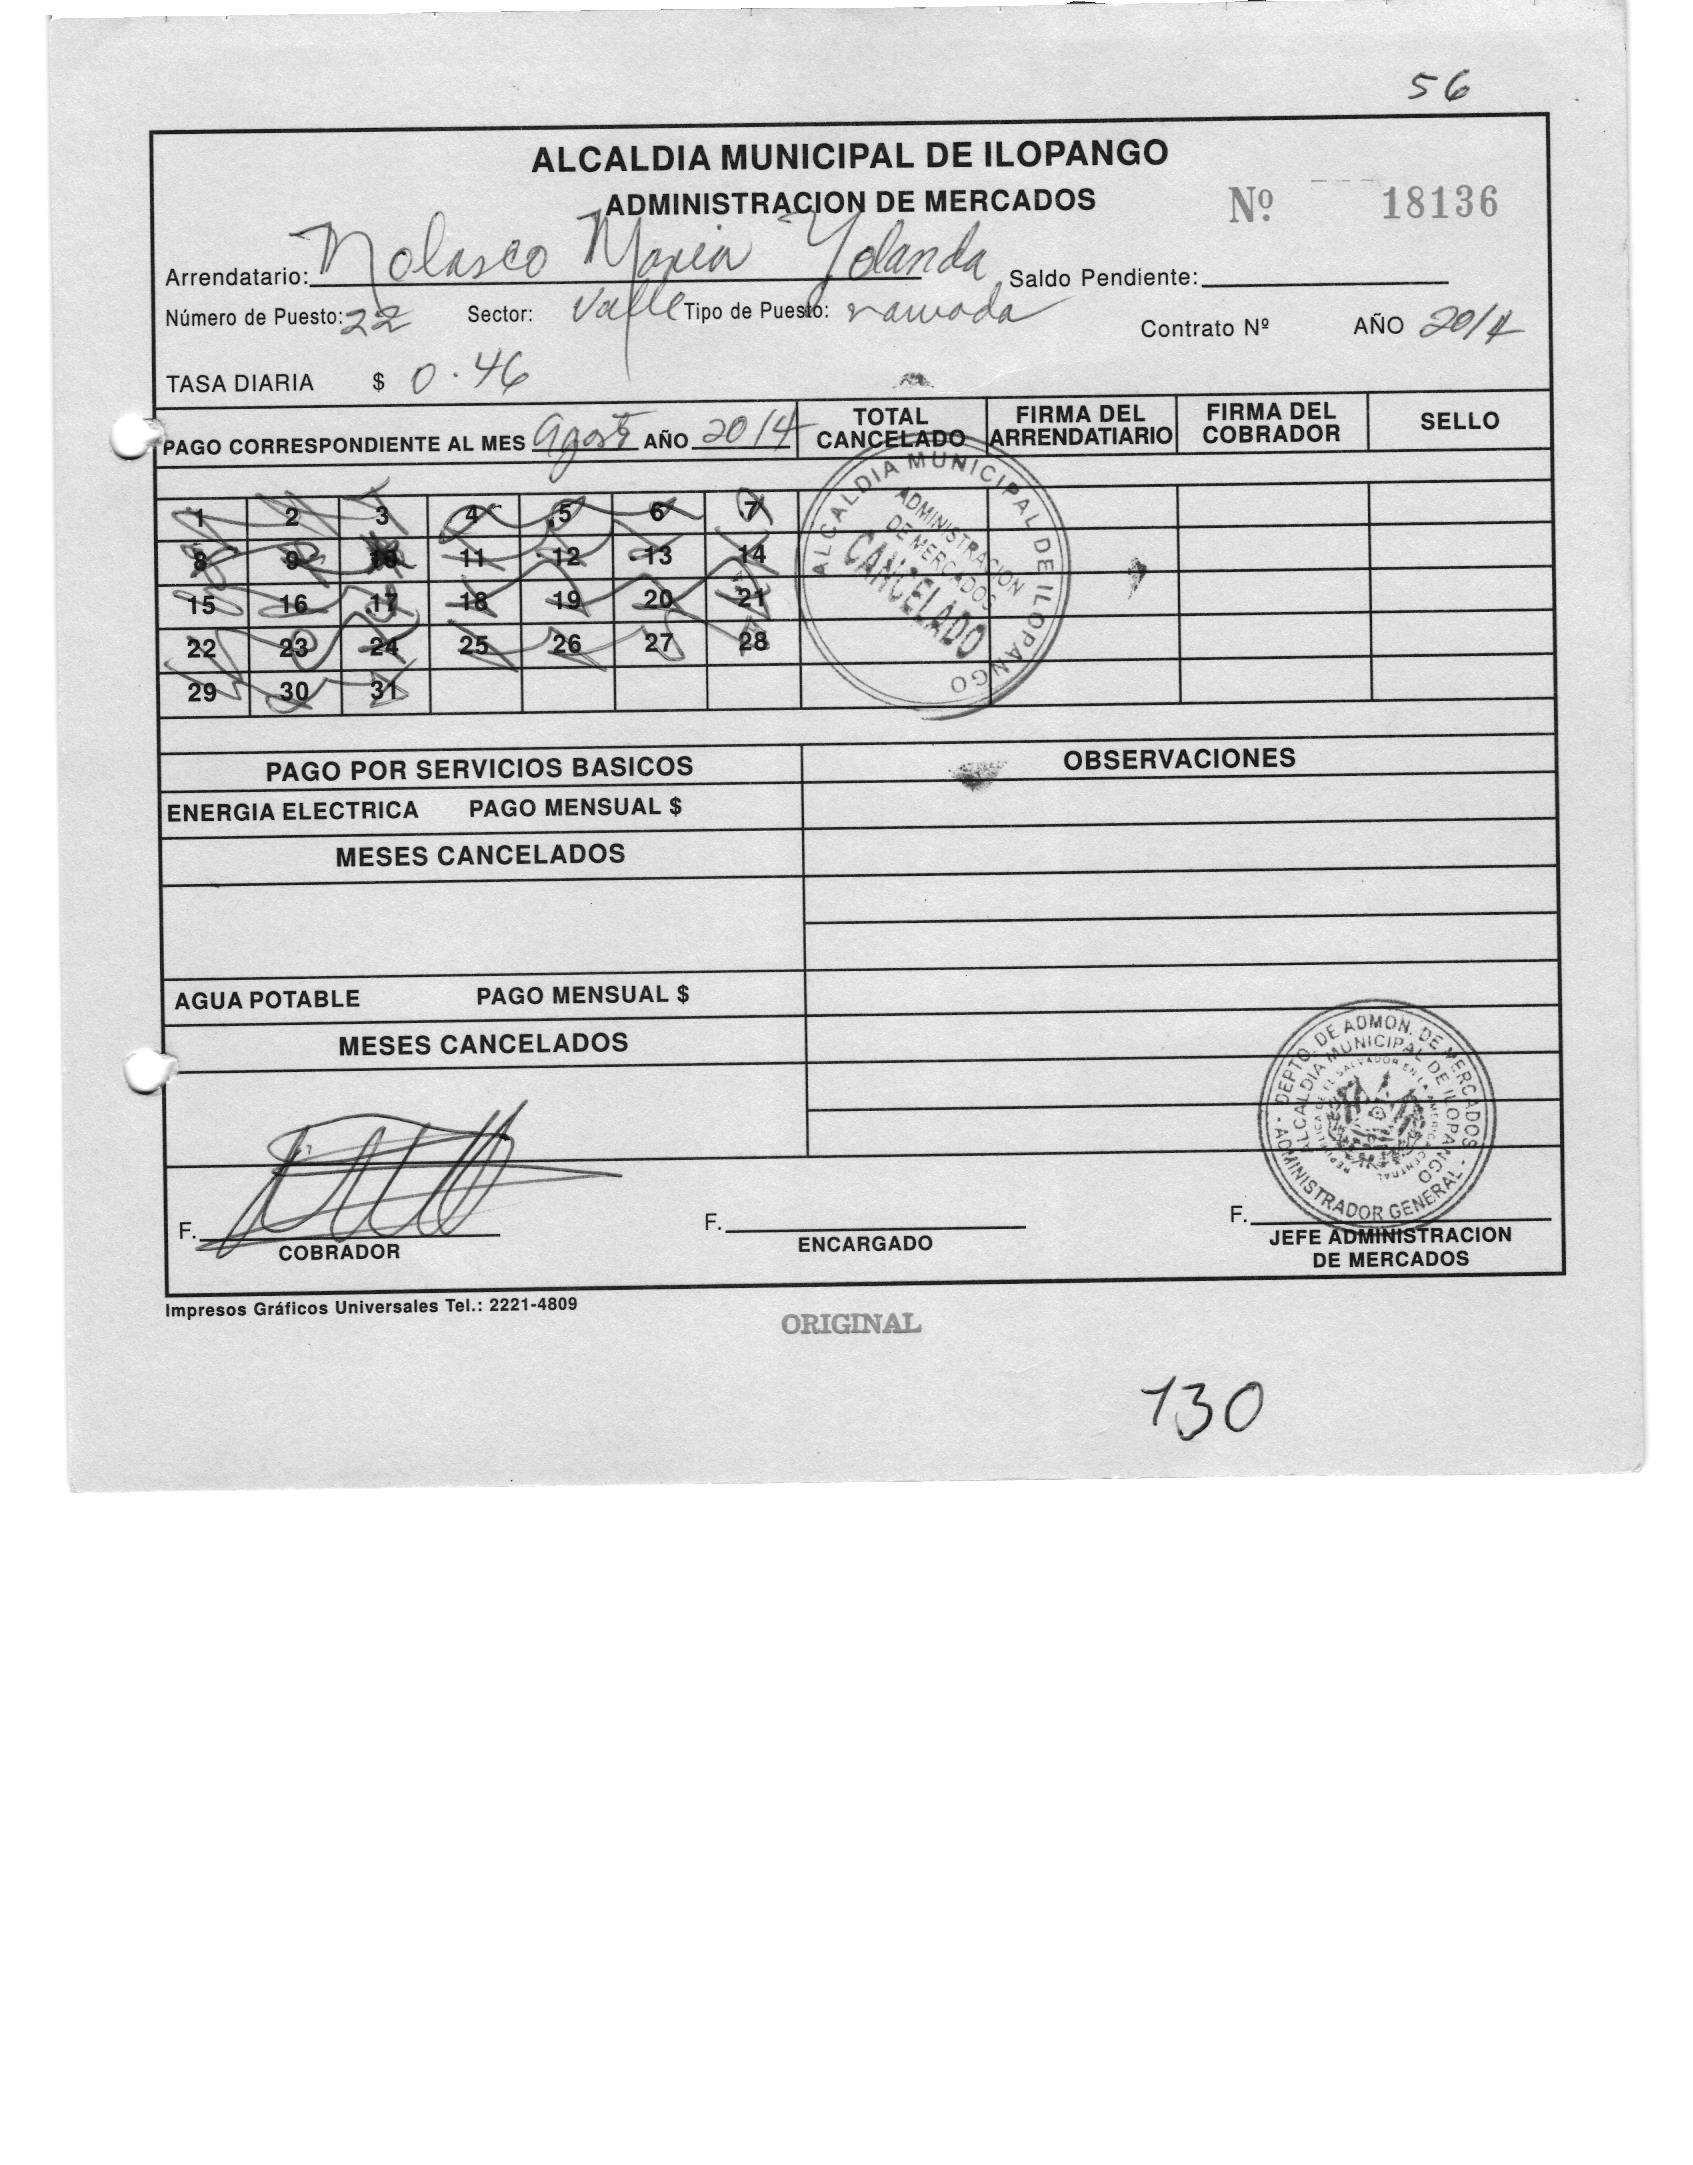 56
ALCALDIA MUNICIPAL DE ILOPANGO
ADMINISTRACION DE MERCADOS
Nº 18136
Arrendatario: Nolasco Maria Yolanda Saldo Pendiente:
Número de Puesto: 22 Sector: Valle Tipo de Puesto: ramada
Contrato Nº AÑO 2014
TASA DIARIA $ 0.46
PAGO CORRESPONDIENTE AL MES Agosto AÑO 2014 TOTAL CANCELADO FIRMA DEL ARRENDATIARIO FIRMA DEL COBRADOR SELLO
1 2 3 4 5 6 7
8 9 10 11 12 13 14
15 16 17 18 19 20 21
22 23 24 25 26 27 28
29 30 31
ALCALDIA MUNICIPAL DE ILOPANGO
ADMINISTRACION
DE MERCADOS
CANCELADO
PAGO POR SERVICIOS BASICOS OBSERVACIONES
ENERGIA ELECTRICA PAGO MENSUAL $
MESES CANCELADOS
AGUA POTABLE PAGO MENSUAL $
MESES CANCELADOS
DEPTO. DE ADMON. DE MERCADOS - ADMINISTRADOR GENERAL -
ALCALDIA MUNICIPAL DE ILOPANGO
REPUBLICA DE EL SALVADOR EN LA AMERICA CENTRAL
F. F. F.
COBRADOR ENCARGADO JEFE ADMINISTRACION
DE MERCADOS
Impresos Gráficos Universales Tel.: 2221-4809
ORIGINAL
130